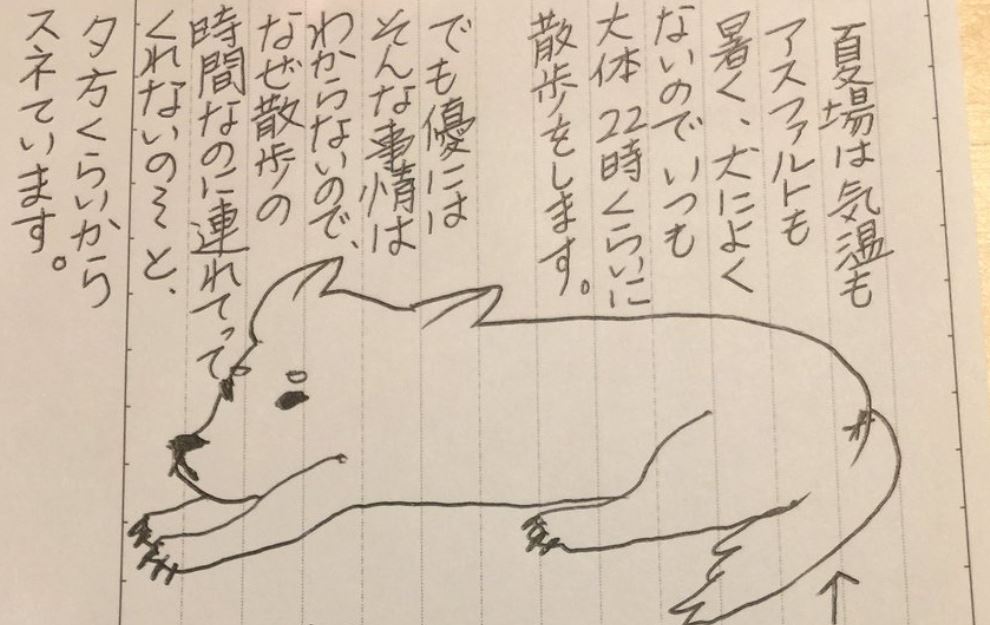 夏場は気温も
アスファルトも
暑く、犬によく
ないのでいつも
大体22時くらいに
散歩をします。
でも優には
そんな事情は
わからないので、
なぜ散歩の
時間なのに連れてって
くれないのミと、
夕方くらいから
スネています。